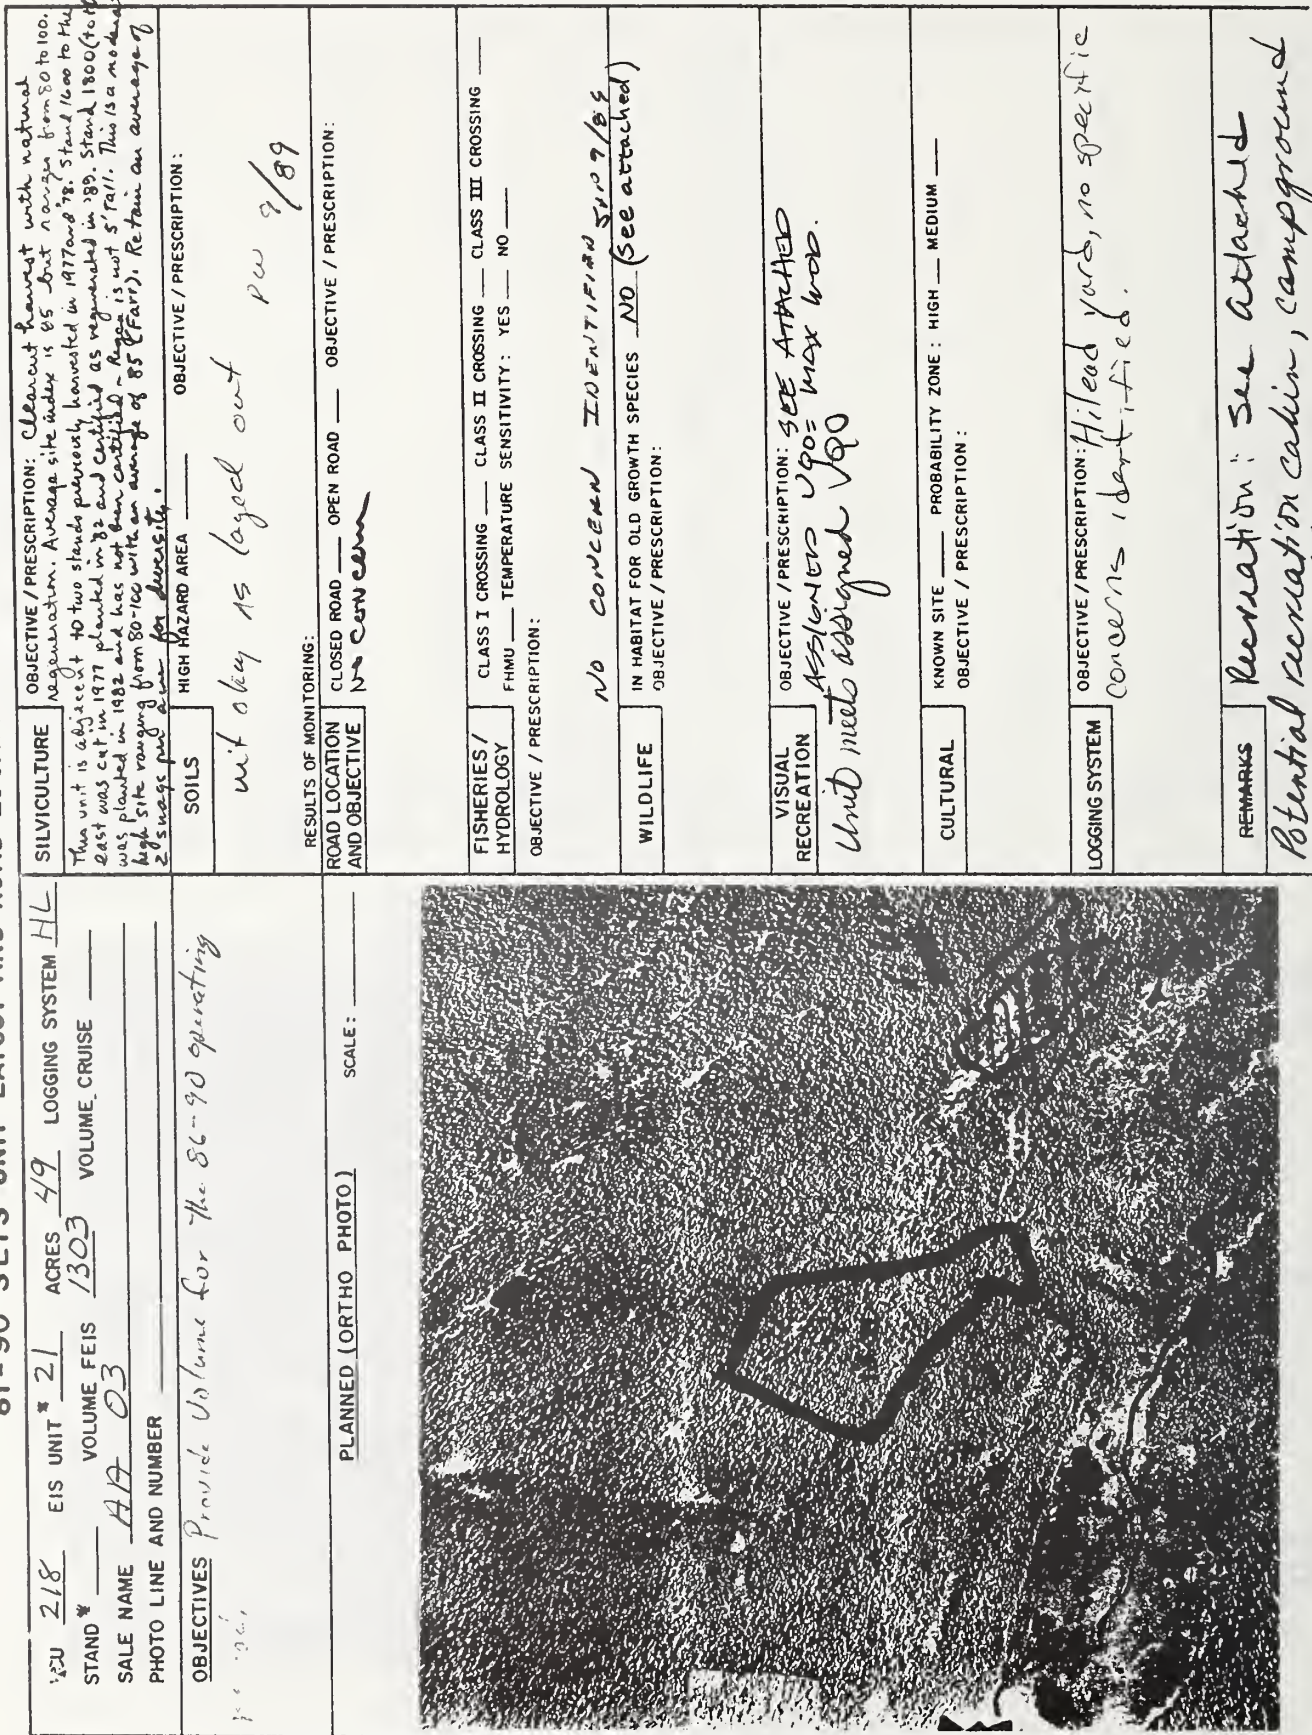 VCU 218 EIS UNIT # 21 ACRES 49 LOGGING SYSTEM HL
STAND # VOLUME FEIS 1303 VOLUME CRUISE
SALE NAME AA 03
PHOTO LINE AND NUMBER
OBJECTIVES Provide Volume for the 86-90 operating
PLANNED (ORTHO PHOTO) SCALE:
SILVICULTURE
OBJECTIVE / PRESCRIPTION: Clearcut harvest with natural
regeneration. Average site index is 85 but ranges from 80 to 100.
This unit is adjacent to two stands previously harvested in 1977 and '78. Stand 1600 to the
east was cut in 1977 planted in '82 and certified as regenerated in '89. Stand 1800 (to the
was planted in 1982 and has not been certified - Regen is not 5' tall. This is a moderate
high site ranging from 80-100 with an average of 85 (Farr). Retain an average of
2 snags per acre for diversity.
SOILS
HIGH HAZARD AREA OBJECTIVE / PRESCRIPTION:
unit okay as layed out PW 9/89
RESULTS OF MONITORING:
ROAD LOCATION AND OBJECTIVE
CLOSED ROAD OPEN ROAD OBJECTIVE / PRESCRIPTION:
No Concern
FISHERIES / HYDROLOGY
CLASS I CROSSING CLASS II CROSSING CLASS III CROSSING
FHMU TEMPERATURE SENSITIVITY: YES NO
OBJECTIVE / PRESCRIPTION:
NO CONCERN IDENTIFIED 9/89
WILDLIFE
IN HABITAT FOR OLD GROWTH SPECIES NO (see attached)
OBJECTIVE / PRESCRIPTION:
VISUAL RECREATION
OBJECTIVE / PRESCRIPTION: SEE ATTACHED
ASSIGNED VQO= MAX MOD.
Unit meets assigned VQO
CULTURAL
KNOWN SITE PROBABILITY ZONE: HIGH MEDIUM
OBJECTIVE / PRESCRIPTION:
LOGGING SYSTEM
OBJECTIVE / PRESCRIPTION: Hilead yard, no specific
concerns identified.
REMARKS
Recreation: See attached
Potential recreation cabin, campground